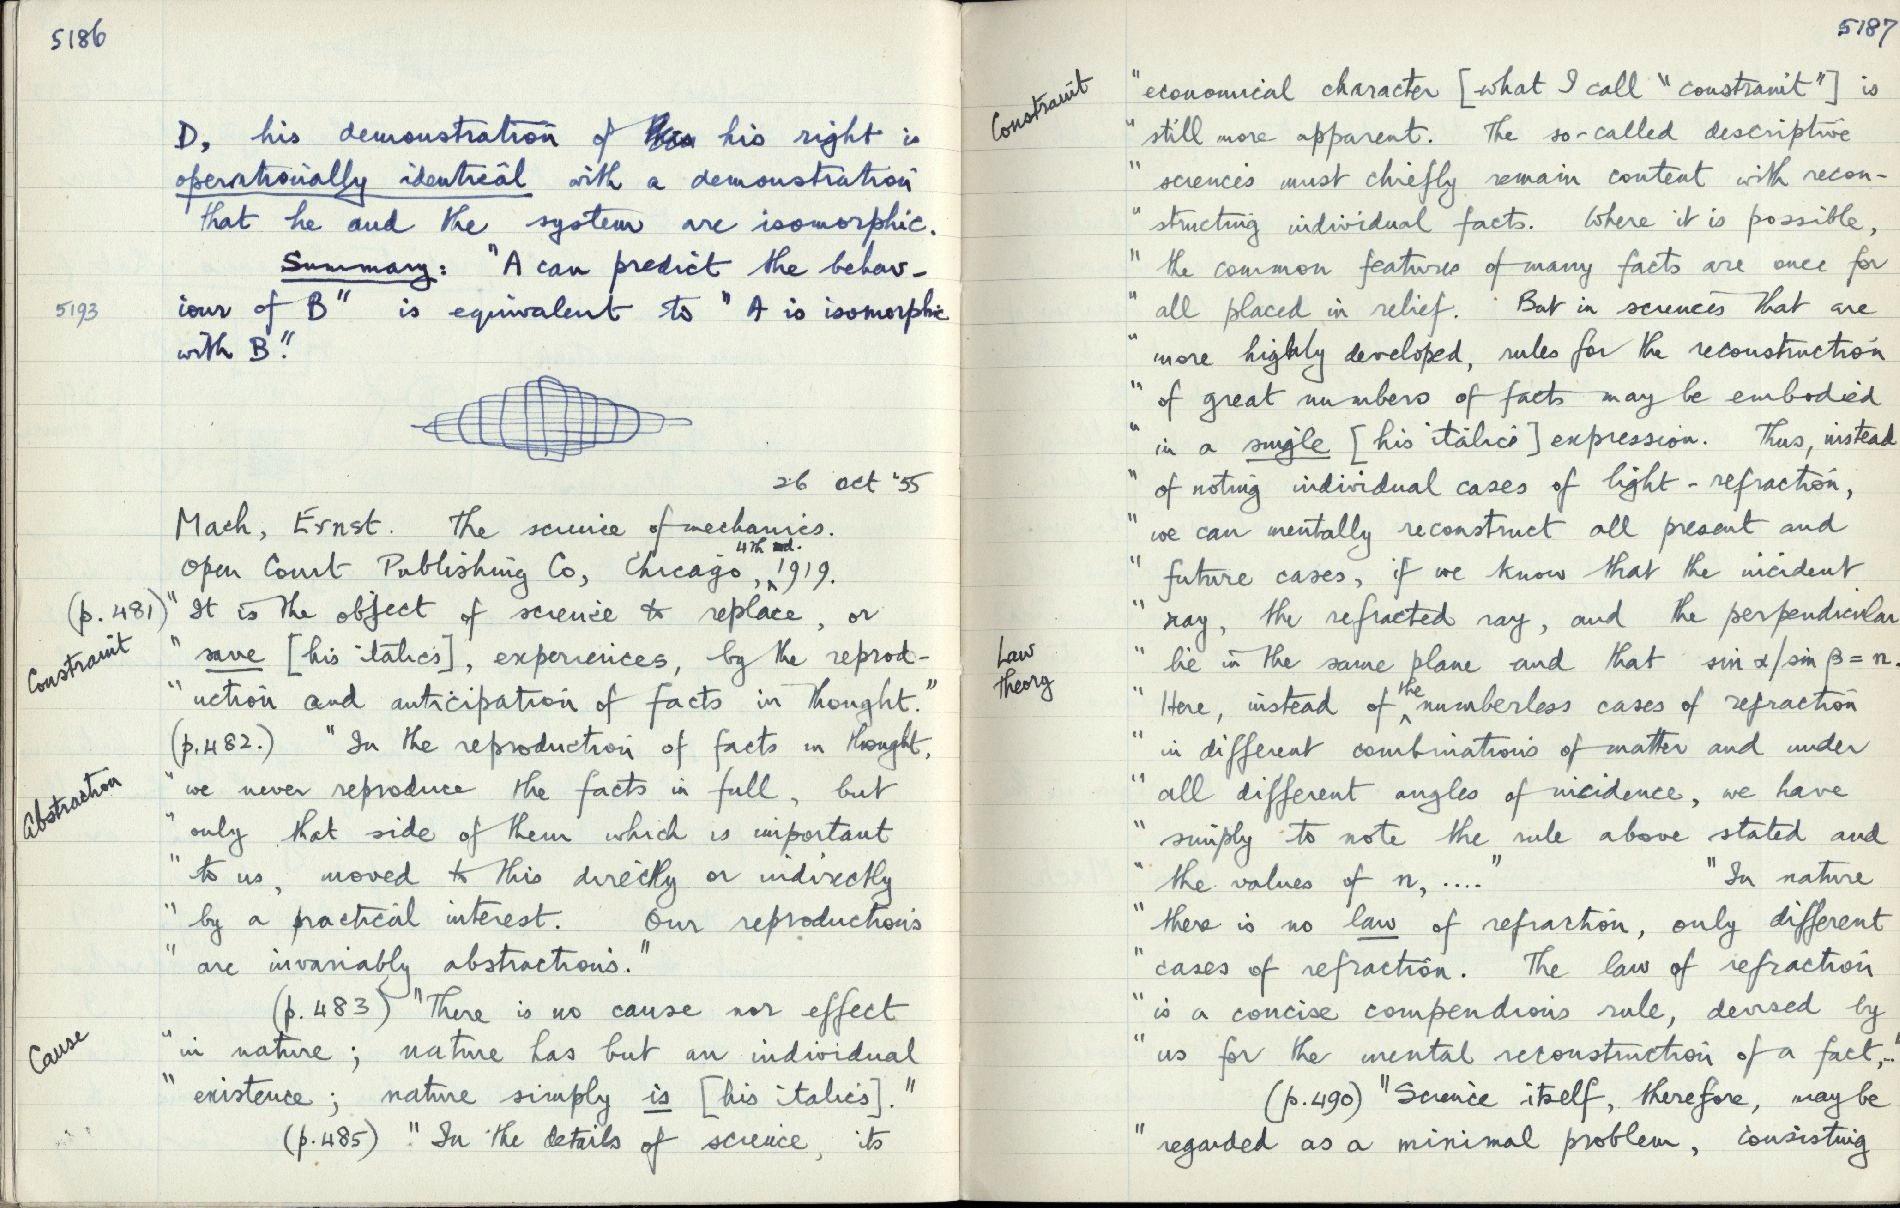 5186
D, his demonstration of his right is
operationally identical with a demonstration
that he and the system are isomorphic.
Summary: "A can predict the behav-
5193
iour of B" is equivalent to "A is isomorphic
with B."
26 Oct '55
Mach, Ernst. The science of mechanics.
4th ed.
Open Court Publishing Co, Chicago, 1919.
(p. 481) "It is the object of science to replace, or
Constraint
" save [his italics], experiences, by the reprod-
" uction and anticipation of facts in thought."
(p. 482.) "In the reproduction of facts in thought,
Abstraction
" we never reproduce the facts in full, but
" only that side of them which is important
" to us, moved to this directly or indirectly
" by a practical interest. Our reproductions
" are invariably abstractions."
(p. 483) "There is no cause nor effect
Cause
" in nature; nature has but an individual
" existence; nature simply is [his italics]."
(p. 485) "In the details of science, its
5187
Constraint
" economical character [what I call "constraint"] is
" still more apparent. The so-called descriptive
" sciences must chiefly remain content with recon-
" structing individual facts. Where it is possible,
" the common features of many facts are once for
" all placed in relief. But in sciences that are
" more highly developed, rules for the reconstruction
" of great numbers of facts may be embodied
" in a single [his italics] expression. Thus, instead
" of noting individual cases of light-refraction,
" we can mentally reconstruct all present and
" future cases, if we know that the incident
" ray, the refracted ray, and the perpendicular
Law
Theory
" lie in the same plane and that sin α/sin β = n.
" Here, instead of the numberless cases of refraction
" in different combinations of matter and under
" all different angles of incidence, we have
" simply to note the rule above stated and
" the values of n, ...." "In nature
" there is no law of refraction, only different
" cases of refraction. The law of refraction
" is a concise compendious rule, devised by
" us for the mental reconstruction of a fact,.."
(p. 490) "Science itself, therefore, may be
" regarded as a minimal problem, consisting